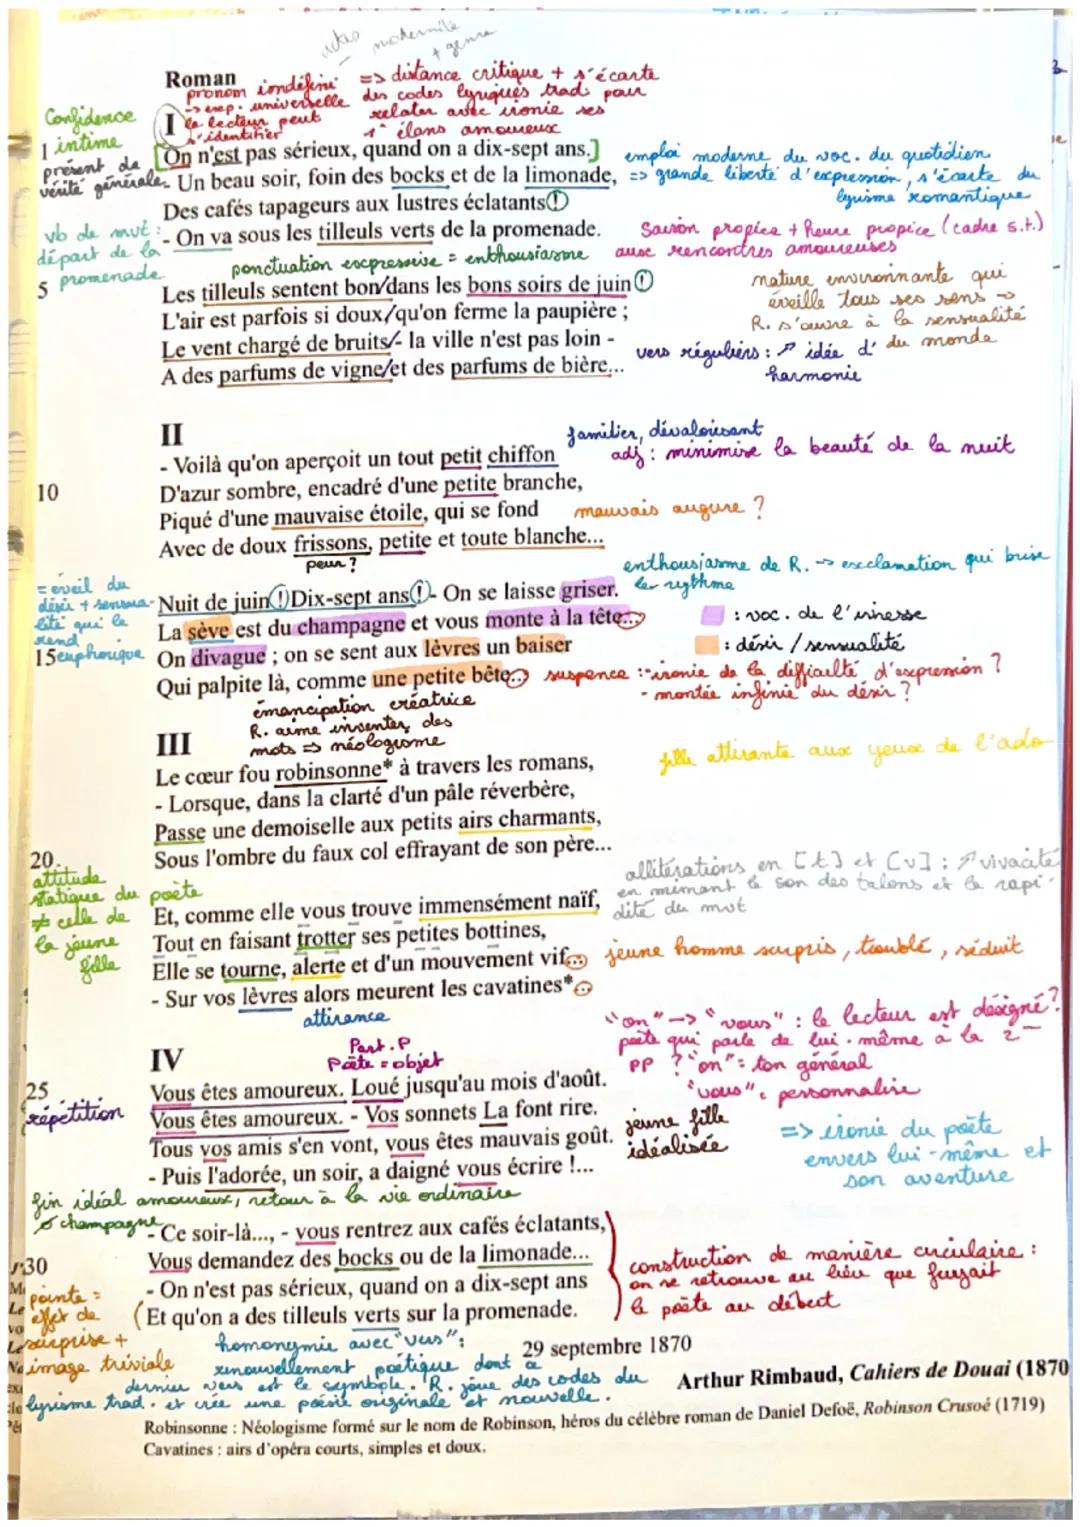 modernité
+ genre
Roman
pronom indéfini => distance critique + s'écarte
-> exp. universelle des codes lyriques trad pour
le lecteur peut relater avec ironie ses
s'identifier 1ers élans amoureux
Confidence
intime
I
1 présent de [On n'est pas sérieux, quand on a dix-sept ans.] emploi moderne du voc. du quotidien
vérité générale Un beau soir, foin des bocks et de la limonade, => grande liberté d'expression, s'écarte du
Des cafés tapageurs aux lustres éclatants ! lyrisme romantique
vb de mvt : - On va sous les tilleuls verts de la promenade. Saison propice + heure propice (cadre s.t.)
départ de la aux rencontres amoureuses
promenade ponctuation expressive = enthousiasme
5 Les tilleuls sentent bon/dans les bons soirs de juin ! nature environnante qui
L'air est parfois si doux/qu'on ferme la paupière ; éveille tous ses sens ->
R. s'ouvre à la sensualité
Le vent chargé de bruits/- la ville n'est pas loin - du monde
A des parfums de vigne/et des parfums de bière... vers réguliers : ↗ idée d'
harmonie
II
familier, dévalorisant
- Voilà qu'on aperçoit un tout petit chiffon adj : minimise la beauté de la nuit
10 D'azur sombre, encadré d'une petite branche,
Piqué d'une mauvaise étoile, qui se fond mauvais augure ?
Avec de doux frissons, petite et toute blanche...
peur ?
enthousiasme de R. -> exclamation qui brise
le rythme
= éveil du
désir + sensua-
lité qui le
rend
euphorique
Nuit de juin ! Dix-sept ans ! - On se laisse griser.
La sève est du champagne et vous monte à la tête... : voc. de l'ivresse
15 On divague ; on se sent aux lèvres un baiser : désir / sensualité
Qui palpite là, comme une petite bête... suspence : - ironie de la difficulté d'expression ?
- montée infinie du désir ?
émancipation créatrice
R. aime inventer des
mots => néologisme
III
Le cœur fou robinsonne* à travers les romans, fille attirante aux yeux de l'ado
- Lorsque, dans la clarté d'un pâle réverbère,
Passe une demoiselle aux petits airs charmants,
20 Sous l'ombre du faux col effrayant de son père...
attitude
statique du poète
≠ celle de
la jeune
fille
allitérations en [t] et [v] : ↗ vivacité
en mimant le son des talons et la rapi-
dité du mvt
Et, comme elle vous trouve immensément naïf,
Tout en faisant trotter ses petites bottines,
Elle se tourne, alerte et d'un mouvement vif... jeune homme surpris, troublé, séduit
- Sur vos lèvres alors meurent les cavatines*...
attirance
"on" -> "vous" : le lecteur est désigné ?
poète qui parle de lui-même à la 2
PP ? "on" : ton général
"vous" : personnalise
IV
Part. P
Poète = objet
25 Vous êtes amoureux. Loué jusqu'au mois d'août.
répétition Vous êtes amoureux. - Vos sonnets La font rire.
Tous vos amis s'en vont, vous êtes mauvais goût. jeune fille
- Puis l'adorée, un soir, a daigné vous écrire !... idéalisée
=> ironie du poète
envers lui-même et
son aventure
fin idéal amoureux, retour à la vie ordinaire
champagne
- Ce soir-là..., - vous rentrez aux cafés éclatants,
30 Vous demandez des bocks ou de la limonade...
- On n'est pas sérieux, quand on a dix-sept ans
Et qu'on a des tilleuls verts sur la promenade.
construction de manière circulaire :
on se retrouve au lieu que fuyait
le poète au début
pointe =
effet de
surprise +
image triviale
homonymie avec "vers" :
renouvellement poétique dont ce
dernier vers est le symbole. R. joue des codes du
lyrisme trad. et crée une poésie originale et nouvelle.
29 septembre 1870
Arthur Rimbaud, Cahiers de Douai (1870
Robinsonne : Néologisme formé sur le nom de Robinson, héros du célèbre roman de Daniel Defoë, Robinson Crusoé (1719)
Cavatines : airs d'opéra courts, simples et doux.